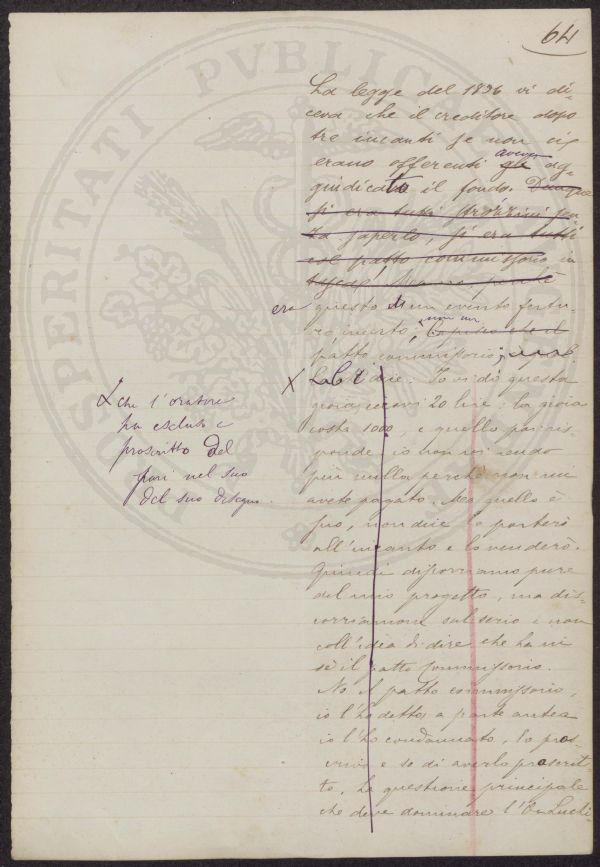 64
La legge del 1896 vi di-
ceva che il creditore dopo
tre incanti se non vi
erano offerenti gli avevan ag-
giudicato il fondo. Dunque
si era tutti strozzini sen-
za saperlo, si era tutti
col patto commissorio in
perché
era questo di un evento futu-
ro incerto, non un
patto commissorio;
X dice: Io vi do questa
gioia, ecco vi 20 lire: la gioia
costa 1000, e quello poi ris
ponde: io non vi rendo
più nulla perché non mi
avete pagato. Ma quello è
suo, non dice lo porterò
all'incanto e lo venderò.
Quindi disporriamo pure
del mio progetto, ma dis-
corriamone sul serio e non
coll'idea di dire che ha in
sè il patto commissorio.
No il patto commissorio,
io l'ho detto a parte antea
io l'ho condannato, lo pros-
crivo e so di averlo proscrit-
to. La questione principale
che deve dominare l'On. Luchi-
che l'oratore
ha escluso e
proscritto del
pari nel suo
del suo disegno.
SPERITATI PVBLICAE